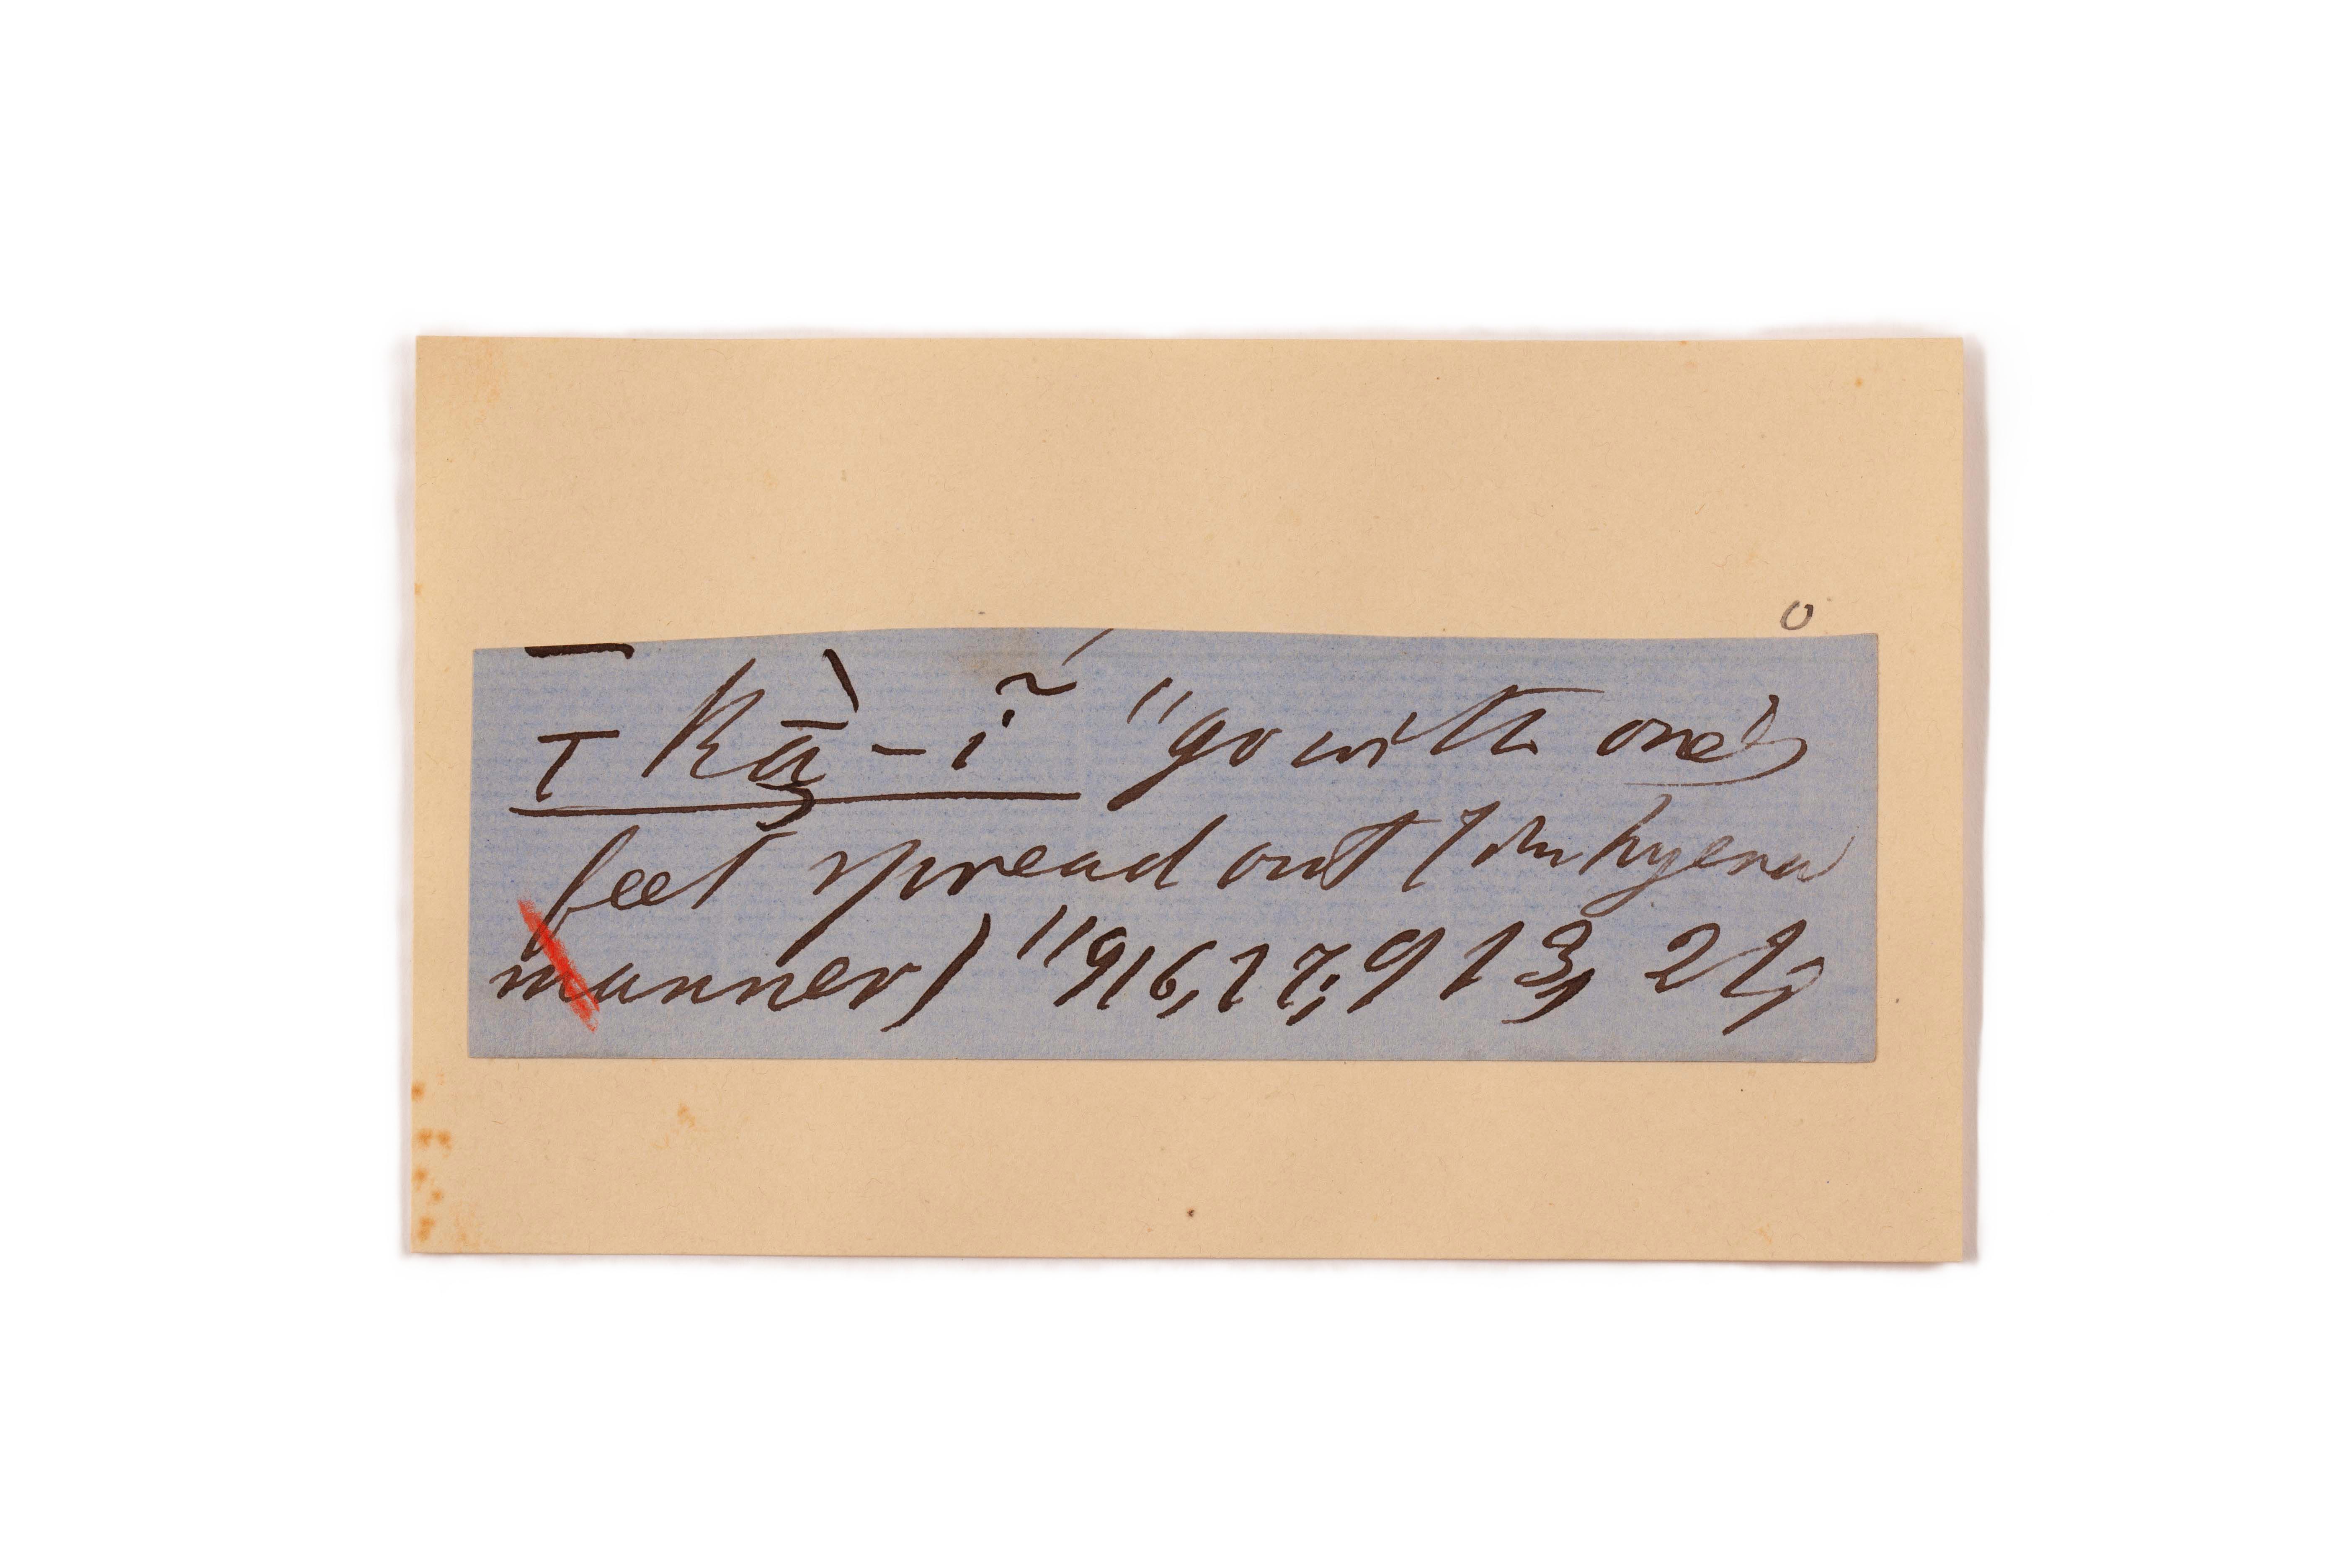 o
T ką̄̀-ĩ́ "go with one's
feet spread out (in hyena
manner)" 916, 17; 913, 21,